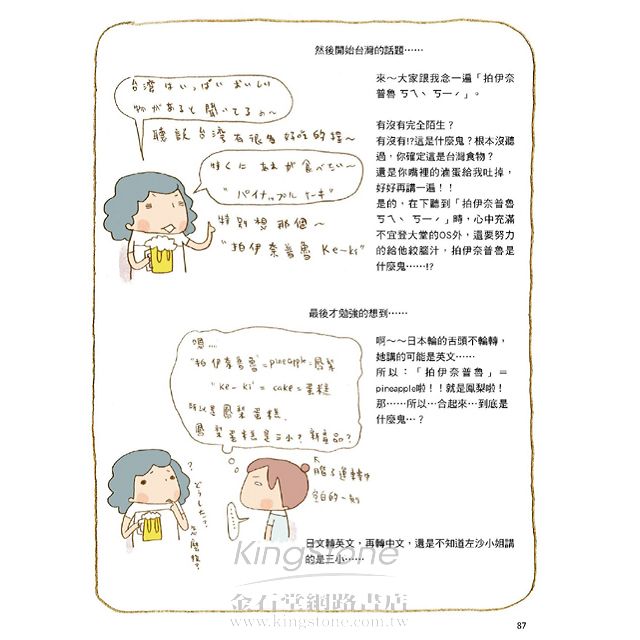 然後開始台灣的話題……
台湾はいっぱい おいしい
物があると聞いてるの〜
聽說台灣有很多好吃的捏〜
特にあれが食べたい〜
"パイナップルケーキ"
特別想那個〜
"拍伊奈普魯 Ke-ki"
來～大家跟我念一遍「拍伊奈
普魯 ㄎㄟˋ ㄎㄧˊ」。
有沒有完全陌生？
有沒有!?這是什麼鬼？根本沒聽
過，你確定這是台灣食物？
還是你嘴裡的滷蛋給我吐掉，
好好再講一遍！！
是的，在下聽到「拍伊奈普魯
ㄎㄟˋ ㄎㄧˊ」時，心中充滿
不宜登大堂的OS外，還要努力
的給他絞腦汁，拍伊奈普魯是
什麼鬼……!?
最後才勉強的想到……
嗯……
"拍伊奈普魯"=pineapple=鳳梨
"ke-ki"=cake=蛋糕
所以是鳳梨蛋糕.
鳳梨蛋糕是三小？新產品？
啊～～日本輪的舌頭不輪轉，
她講的可能是英文……
所以：「拍伊奈普魯」＝
pineapple啦！！就是鳳梨啦！
那……所以…合起來…到底是
什麼鬼…？
？
どうした？
怎麼啦？
日文轉英文，再轉中文，還是不知道左沙小姐講
的是三小……
KingStone
金石堂網路書店
www.kingstone.com.tw
87